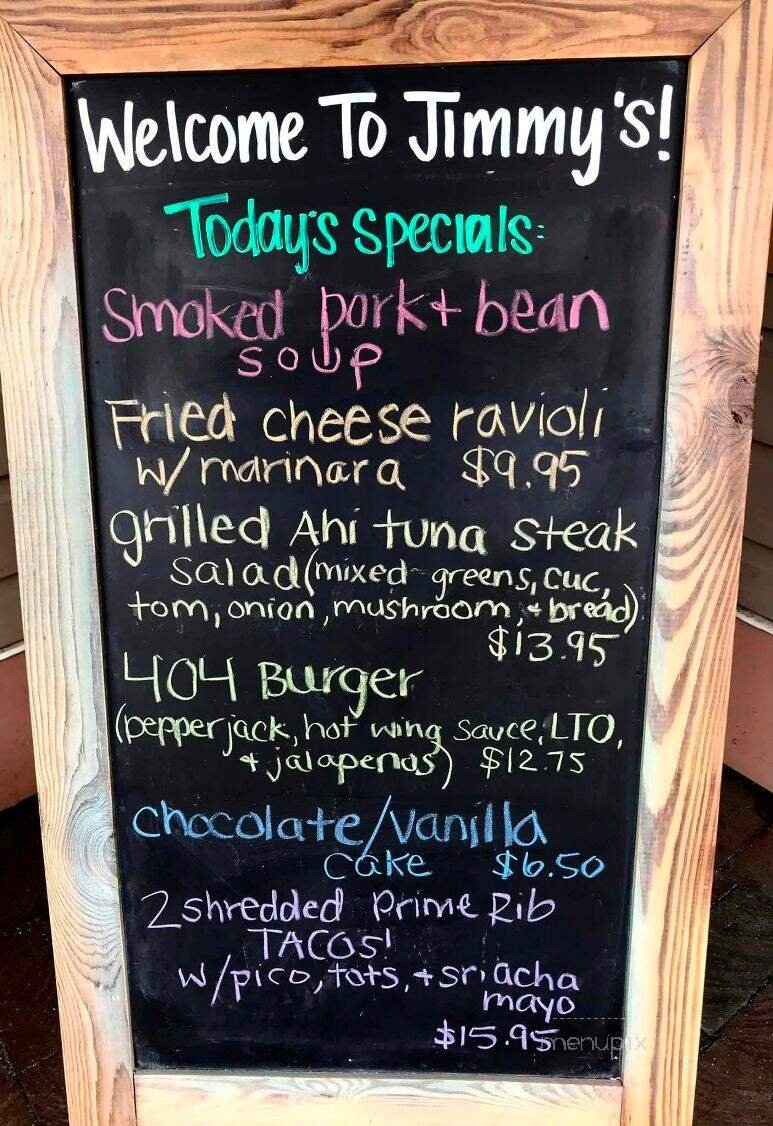 Welcome To Jimmy's!
Today's Specials:
Smoked pork + bean
soup
Fried cheese ravioli
w/ marinara $9.95
grilled Ahi tuna steak
salad (mixed greens, cuc,
tom, onion, mushroom, + bread)
$13.95
404 Burger
(pepper jack, hot wing sauce, LTO,
+ jalapenos) $12.75
chocolate/vanilla
cake $6.50
2 shredded Prime Rib
TACOS!
w/pico, tots, + sriracha
mayo
$15.95
menupix